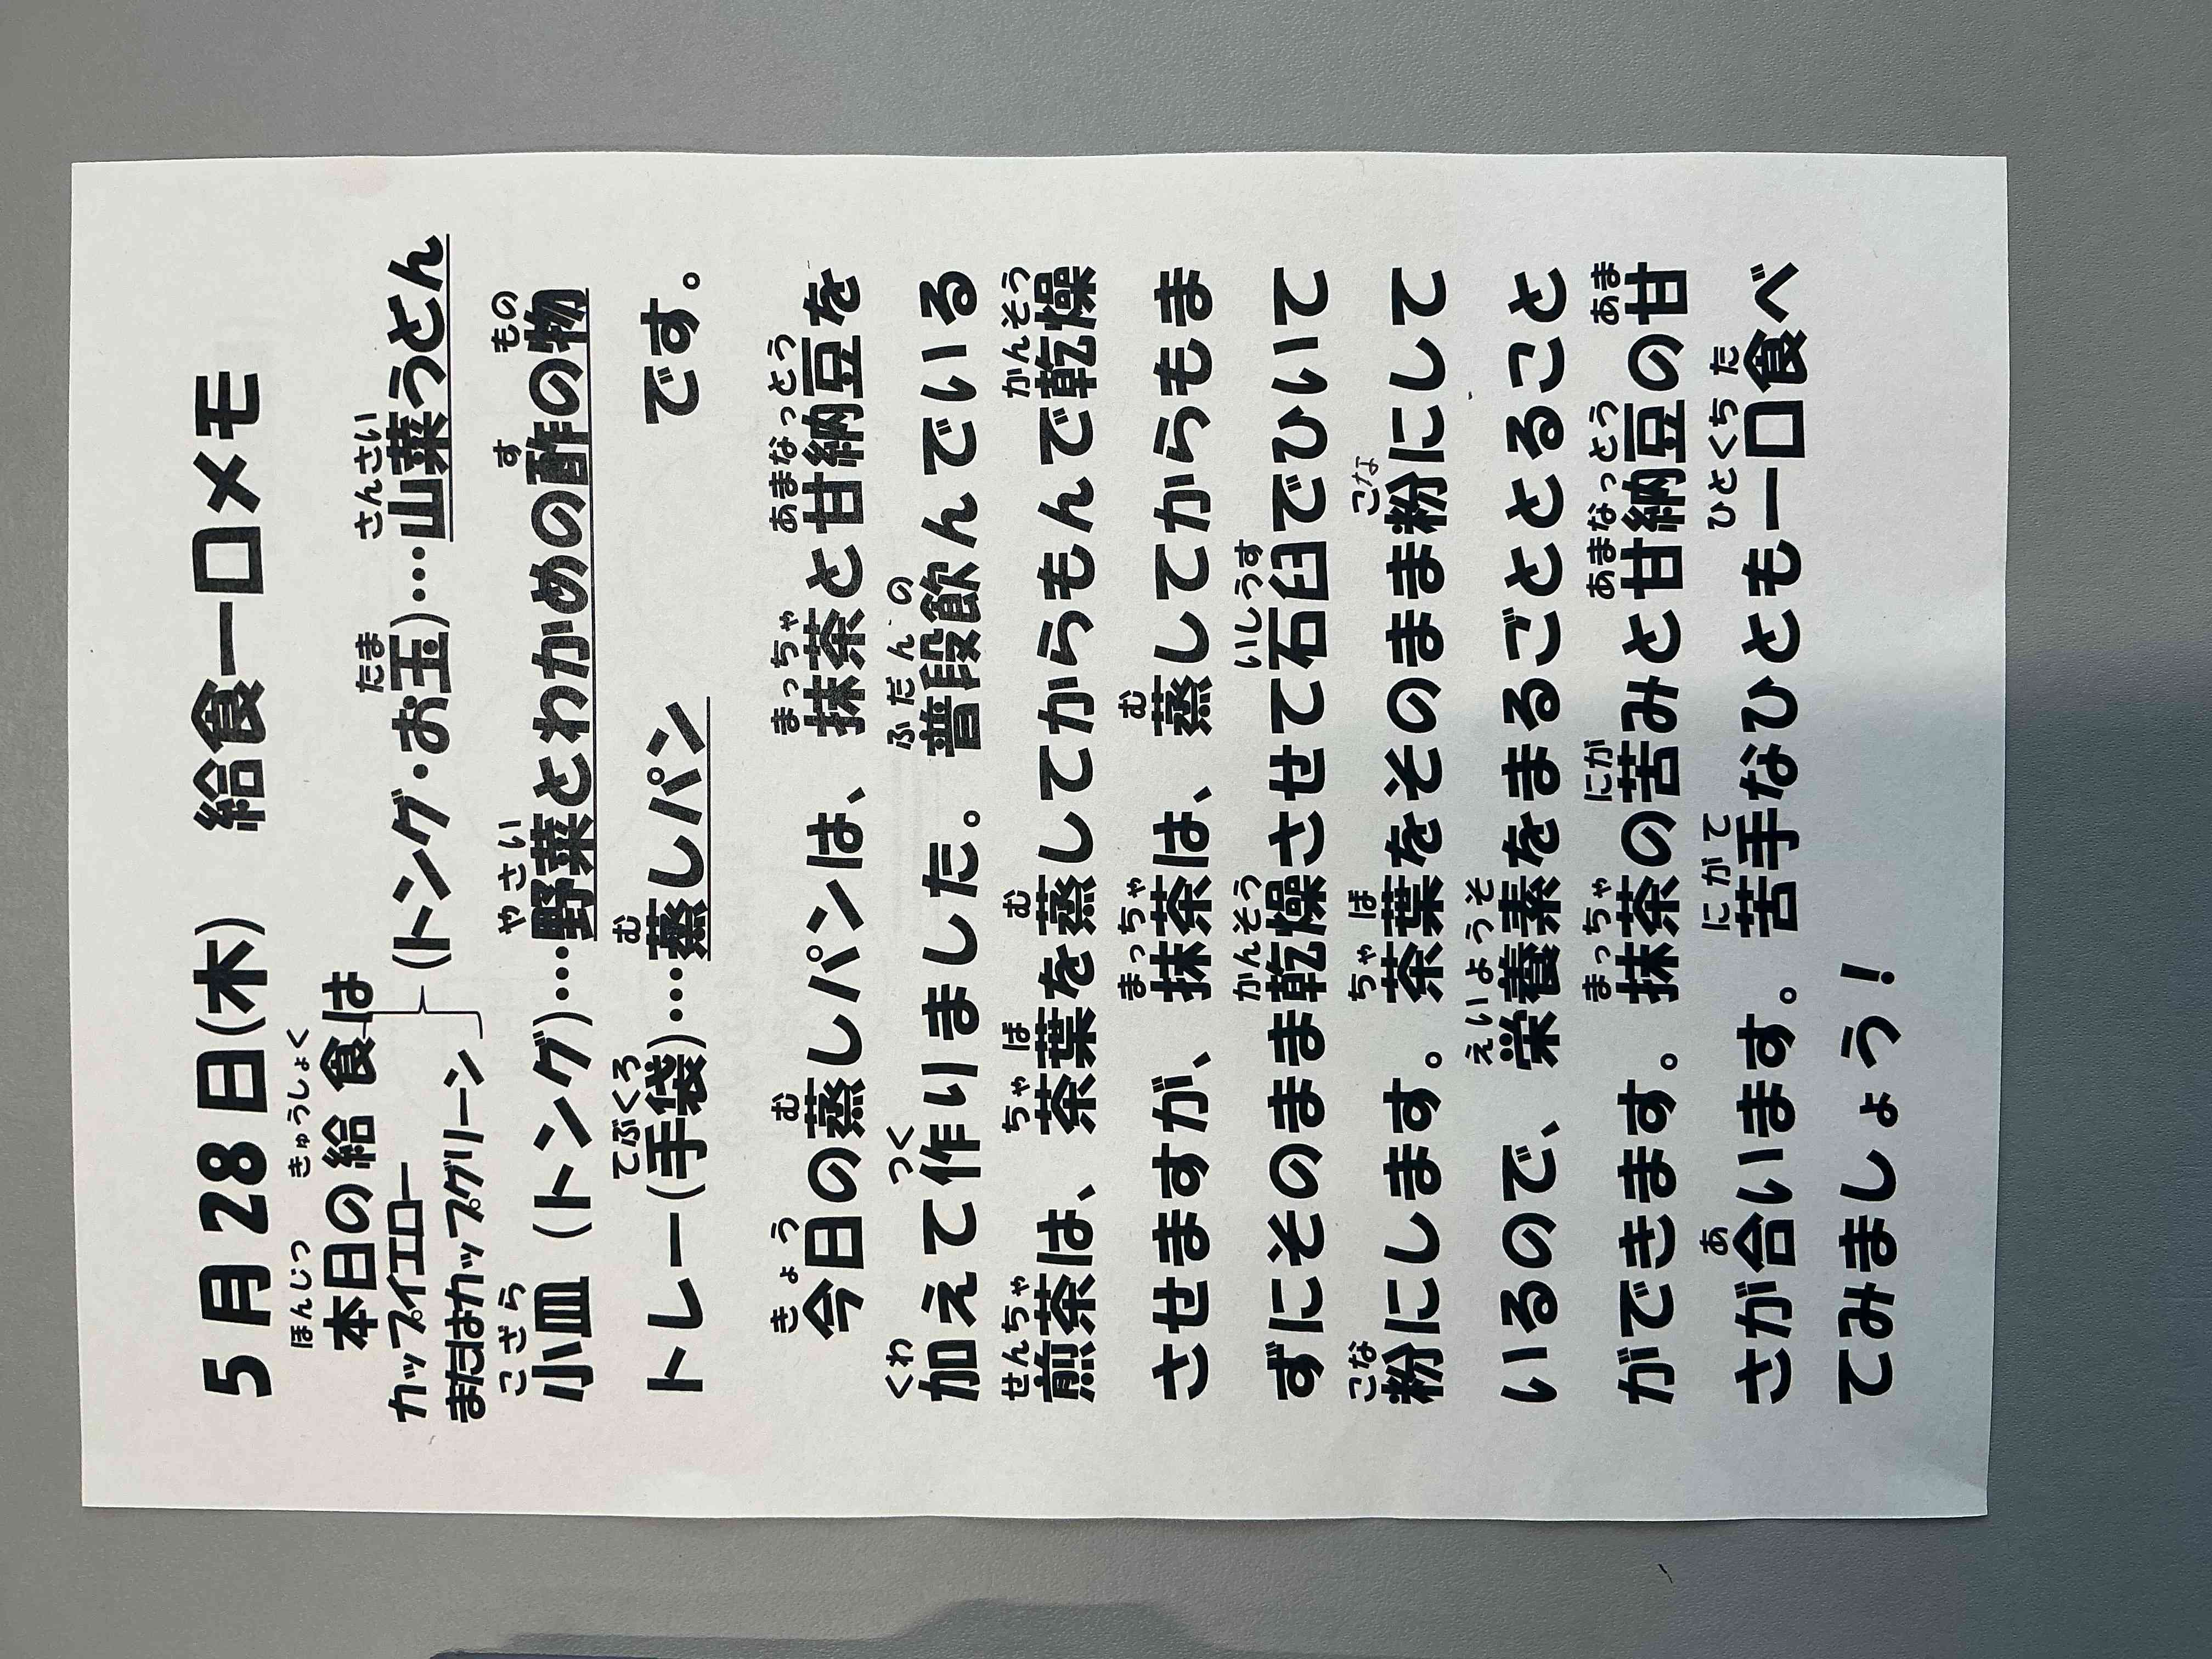 5月28日(木) 給食一口メモ
本日の給食は
カップイエロー
またはカップグリーン
(トング・お玉)…山菜うどん
小皿 (トング)…野菜とわかめの酢の物
トレー(手袋)…蒸しパン です。
今日の蒸しパンは、抹茶と甘納豆を
加えて作いました。普段飲んでいる
煎茶は、茶葉を蒸してからもんで乾燥
させますが、抹茶は、蒸してからもま
ずにそのまま乾燥させて石臼でひいて
粉にします。茶葉をそのまま粉にして
いるので、栄養素をまるごととること
ができます。抹茶の苦みと甘納豆の甘
さが合います。苦手なひとも一口食べ
てみましょう！